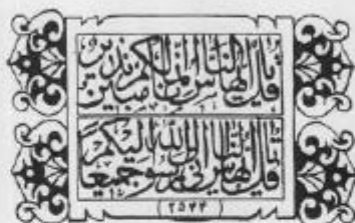 قل يا أيها الناس إنما أنا لكم نذير مبين
قل يا أيها الناس إني رسول الله إليكم جميعا